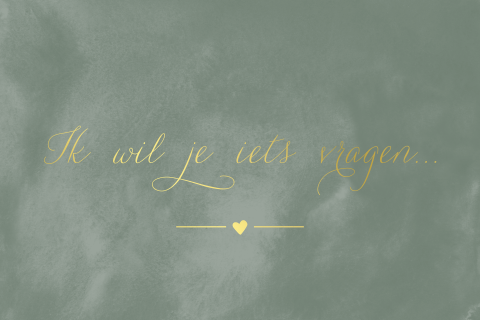 Ik wil je iets vragen...